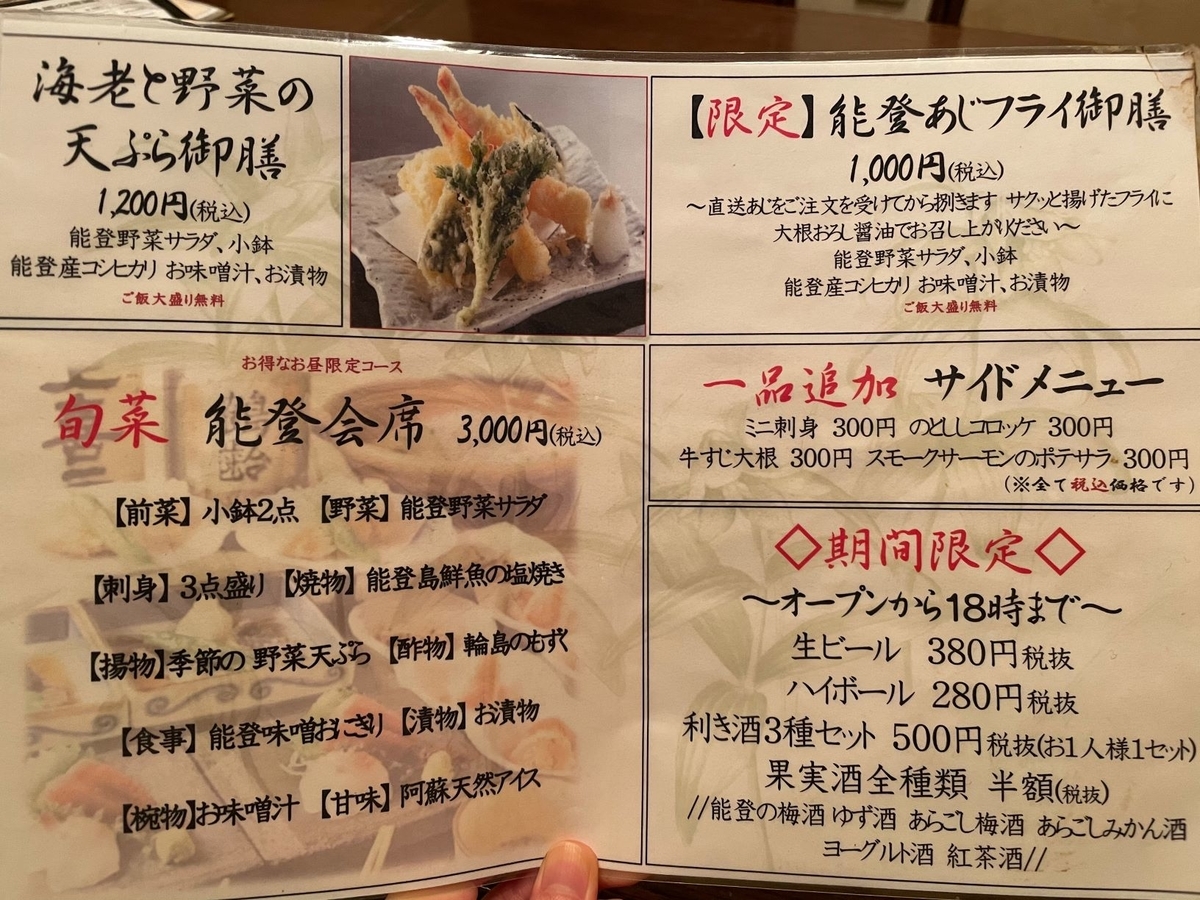 海老と野菜の
天ぷら御膳
1,200円(税込)
能登野菜サラダ、小鉢
能登産コシヒカリ お味噌汁、お漬物
ご飯大盛り無料
【限定】能登あじフライ御膳
1,000円(税込)
～直送あじをご注文を受けてから捌きます サクッと揚げたフライに
大根おろし醤油でお召し上がりください～
能登野菜サラダ、小鉢
能登産コシヒカリ お味噌汁、お漬物
ご飯大盛り無料
お得なお昼限定コース
旬菜 能登会席 3,000円(税込)
【前菜】小鉢2点 【野菜】能登野菜サラダ
【刺身】3点盛り 【焼物】能登島鮮魚の塩焼き
【揚物】季節の 野菜天ぷら 【酢物】輪島のもずく
【食事】能登味噌おにぎり 【漬物】お漬物
【椀物】お味噌汁 【甘味】阿蘇天然アイス
一品追加 サイドメニュー
ミニ刺身 300円 のとししコロッケ 300円
牛すじ大根 300円 スモークサーモンのポテサラ 300円
(※全て税込価格です)
◇期間限定◇
～オープンから18時まで～
生ビール 380円税抜
ハイボール 280円税抜
利き酒3種セット 500円税抜(お1人様1セット)
果実酒全種類 半額(税抜)
//能登の梅酒 ゆず酒 あらごし梅酒 あらごしみかん酒
ヨーグルト酒 紅茶酒//